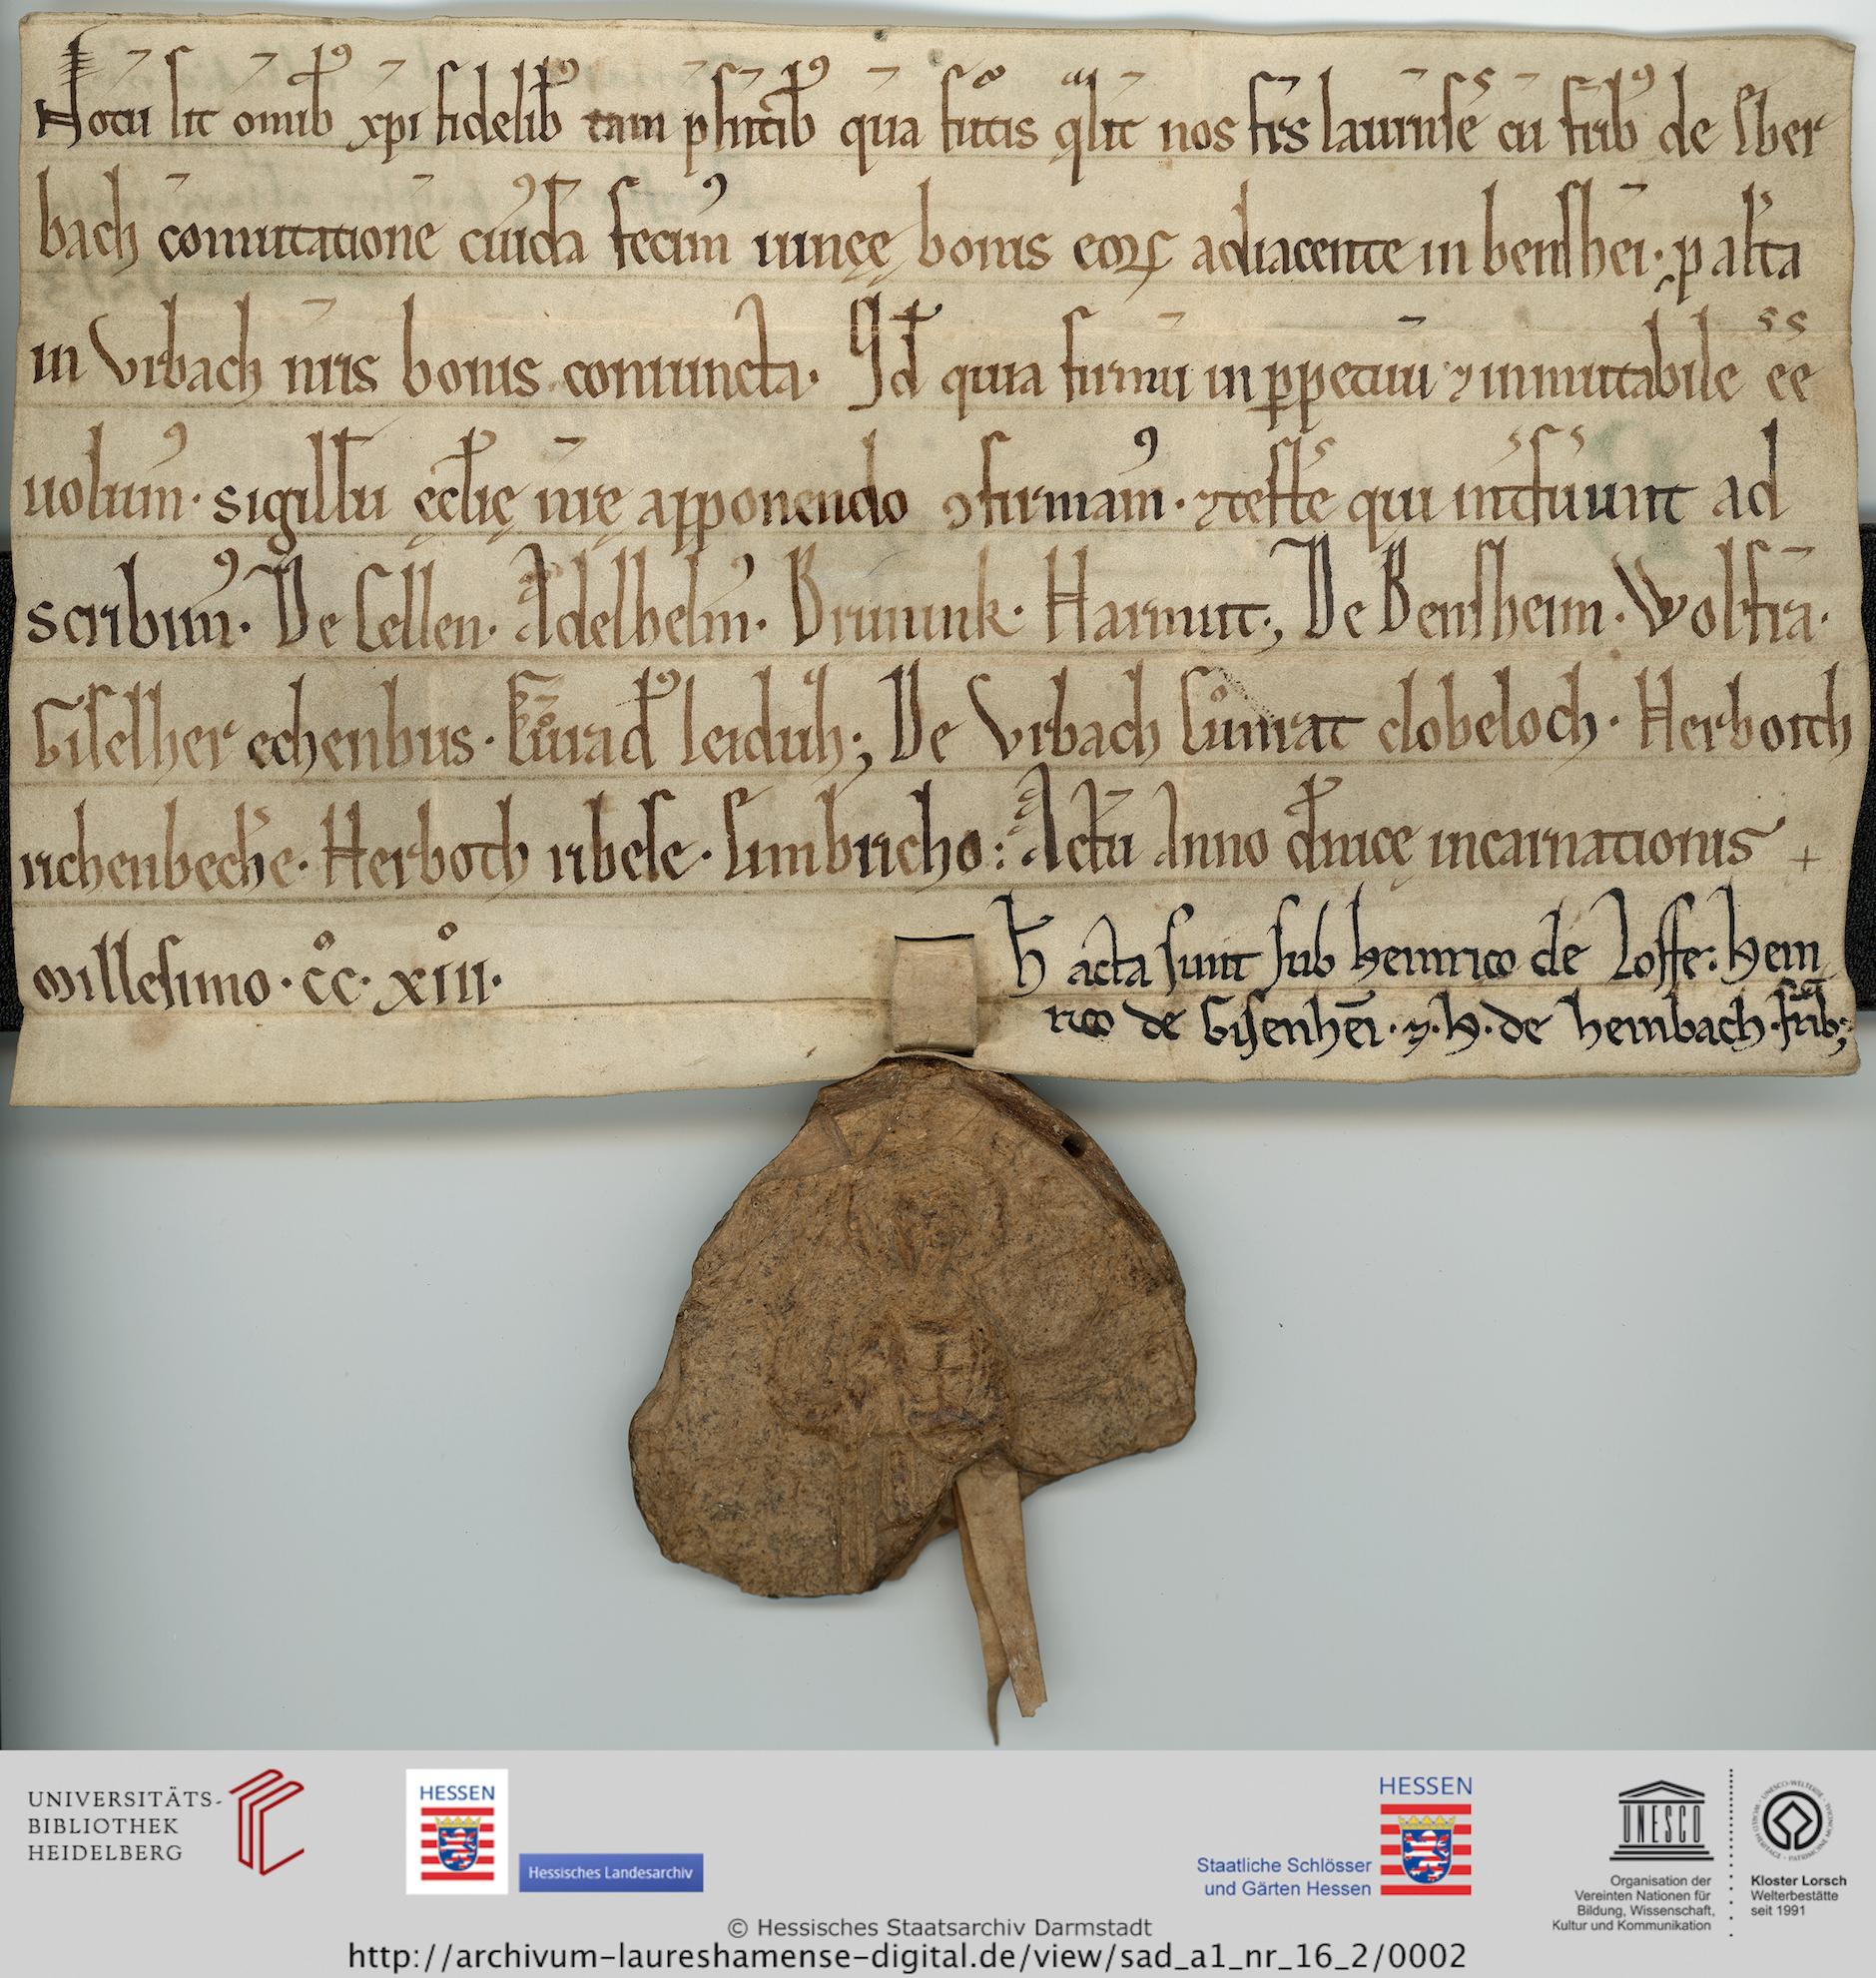 Notū sit om̄ib⁹ xp̄i fidelib⁹ tam p̄sentib⁹ quā futᷣis qᵃlit̄ nos fr̄s laurı̄nses cū frı̄b⁹ de Eber
bach cōmutationē cuiᷣdā fecim⁹ uineę bonis eoꝝ adiacente in bensheī· ꝓ alťa
in Vrbach nr̄is bonis coniuncta· Id quia firmū in ꝑpetuū ⁊ inmutabile ēē
uolum⁹· sigillū ęcclię nr̄ę apponendo ꝯfirmam⁹· ⁊ testes qui int̄fuᷣunt ad
scribim⁹· De Cellen· Adelhelm⁹· Brunink· Harmut·; De Bensheim· Wolfrā·
Giselher echenbus· Cůnrad⁹ leiduh·; De Vrbach Cůnrat clobeloch· Herborth
richenbechᷣe· Herboth ribese· Simbricho: Actū Anno dn̄icę incarnationis +
Millesimo· cͦc· xͦiii·
h̄ acta sunt sub heinrico de Losse: hein
rico de Gisenheī· ⁊· H· de heinbach· frı̄b;
UNIVERSITÄTS-
BIBLIOTHEK
HEIDELBERG
HESSEN
Hessisches Landesarchiv
HESSEN
Staatliche Schlösser
und Gärten Hessen
UNESCO
Organisation der
Vereinten Nationen für
Bildung, Wissenschaft,
Kultur und Kommunikation
Kloster Lorsch
Welterbestätte
seit 1991
© Hessisches Staatsarchiv Darmstadt
http://archivum-laureshamense-digital.de/view/sad_a1_nr_16_2/0002